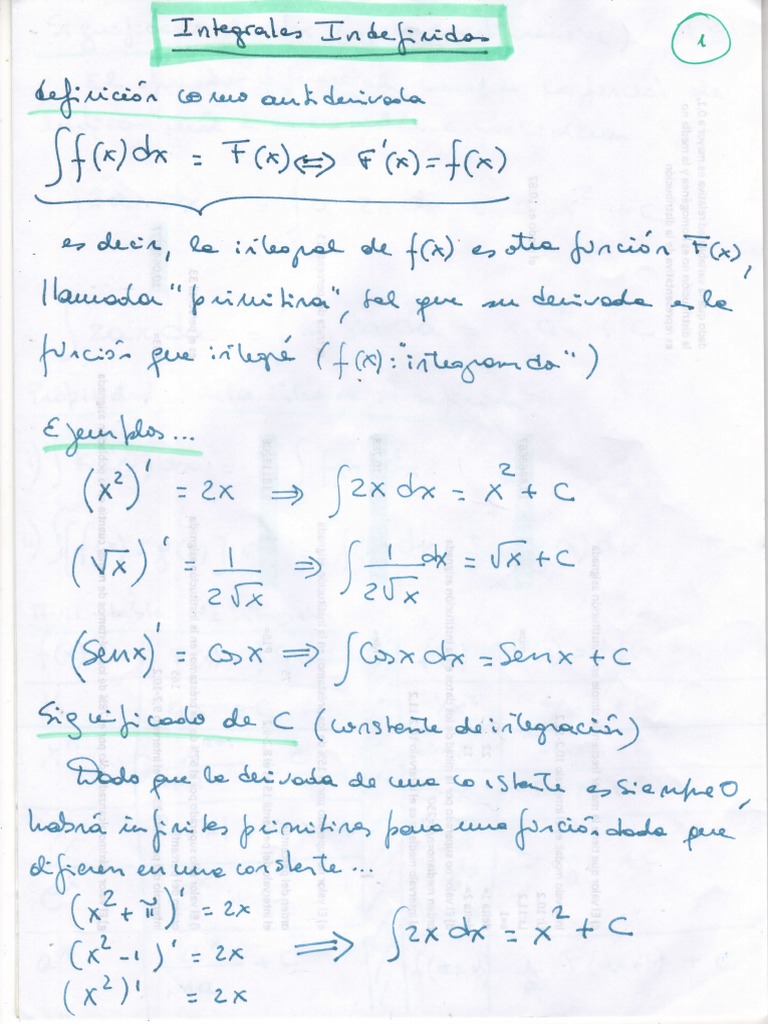 Integrales Indefinidas
1
definición como antiderivada
∫f(x)dx = F(x) ⟺ F'(x) = f(x)
es decir, la integral de f(x) es otra función F(x),
llamada "primitiva", tal que su derivada e la
función que integré (f(x): "integrando")
Ejemplos...
(x²)' = 2x ⟹ ∫2x dx = x² + C
(√x)' = 1/(2√x) ⟹ ∫ 1/(2√x) dx = √x + C
(Sen x)' = Cos x ⟹ ∫Cos x dx = Sen x + C
Significado de C (constante de integración)
Dado que la derivada de una constante es siempre 0,
habrá infinitas primitivas para una función dada que
difieren en una constante...
(x² + π)' = 2x
(x² - 1)' = 2x ⟹ ∫2x dx = x² + C
(x²)' = 2x